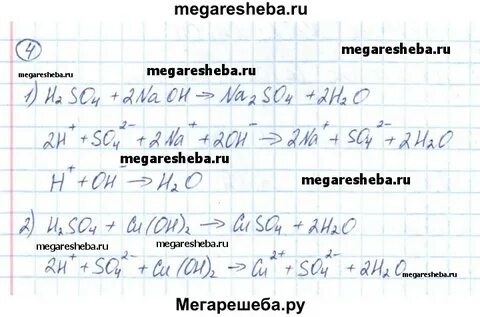 megaresheba.ru
4
megaresheba.ru megaresheba.ru
1) H₂SO₄ + 2NaOH → Na₂SO₄ + 2H₂O
2H⁺ + SO₄²⁻ + 2Na⁺ + 2OH⁻ → 2Na⁺ + SO₄²⁻ + 2H₂O
megaresheba.ru
H⁺ + OH⁻ → H₂O
megaresheba.ru
2) H₂SO₄ + Cu(OH)₂ → CuSO₄ + 2H₂O
megaresheba.ru megaresheba.ru
2H⁺ + SO₄²⁻ + Cu(OH)₂ → Cu²⁺ + SO₄²⁻ + 2H₂O
megaresheba.ru
Мегарешеба.ру